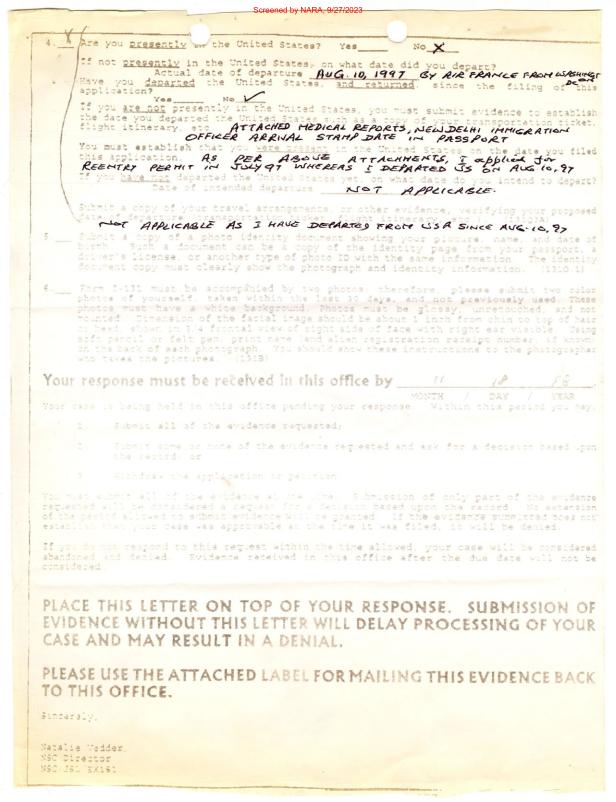 Screened by NARA, 9/27/2023
4. X Are you presently in the United States? Yes No X
If not presently in the United States, on what date did you depart?
Actual date of departure AUG. 10, 1997 BY AIR FRANCE FROM WASHINGT
DC ON
Have you departed the United States, and returned, since the filing of this
application?
Yes No ✓
If you are not presently in the United States, you must submit evidence to establish
the date you departed the United States such as a copy of your transportation ticket,
flight itinerary, ATTACHED MEDICAL REPORTS, NEW DELHI IMMIGRATION
OFFICER ARRIVAL STAMP DATE IN PASSPORT
You must establish that you were present in the United States on the date you filed
this application. AS PER ABOVE ATTACHMENTS, I applied for
REENTRY PERMIT IN JULY 97 WHEREAS I DEPARTED US ON AUG 10, 97
If you have not departed the United States yet, on what date do you intend to depart?
Date of intended departure NOT APPLICABLE.
Submit a copy of your travel arrangements, or other evidence, verifying your proposed
NOT APPLICABLE AS I HAVE DEPARTED FROM USA SINCE AUG. 10, 97
5. Submit a copy of a photo identity document showing your picture, name, and date of
birth. Such a document can be a copy of the identity page from your passport,
driver's license, or another type of photo ID with the same information. The identity
document copy must clearly show the photograph and identity information.
6. Form I-131 must be accompanied by two photos, therefore, please submit two color
photos of yourself, taken within the last 30 days, and not previously used. These
photos must have a white background. Photos must be glossy, unretouched, and not
mounted. Dimension of the facial image should be about 1 inch from chin to top of hair
or head, shown in 3/4 frontal view of right side of face with right ear visible. Using
soft pencil or felt pen, print name (and alien registration receipt number, if known)
on the back of each photograph. You should show these instructions to the photographer
who takes the pictures.
Your response must be received in this office by 11 18
MONTH / DAY / YEAR
Your case is being held in this office pending your response. Within this period you may:
1. Submit all of the evidence requested;
2. Submit some or none of the evidence requested and ask for a decision based upon
the record; or
3. Withdraw the application or petition.
You must submit all of the evidence at one time. Submission of only part of the evidence
requested will be considered a request for a decision based upon the record. No extension
of the period allowed to submit evidence will be granted. If the evidence submitted does not
establish that your case was approvable at the time it was filed, it will be denied.
If you do not respond to this request within the time allowed, your case will be considered
abandoned and denied. Evidence received in this office after the due date will not be
considered.
PLACE THIS LETTER ON TOP OF YOUR RESPONSE. SUBMISSION OF
EVIDENCE WITHOUT THIS LETTER WILL DELAY PROCESSING OF YOUR
CASE AND MAY RESULT IN A DENIAL.
PLEASE USE THE ATTACHED LABEL FOR MAILING THIS EVIDENCE BACK
TO THIS OFFICE.
Sincerely,
Natalie Vedder
NSC Director